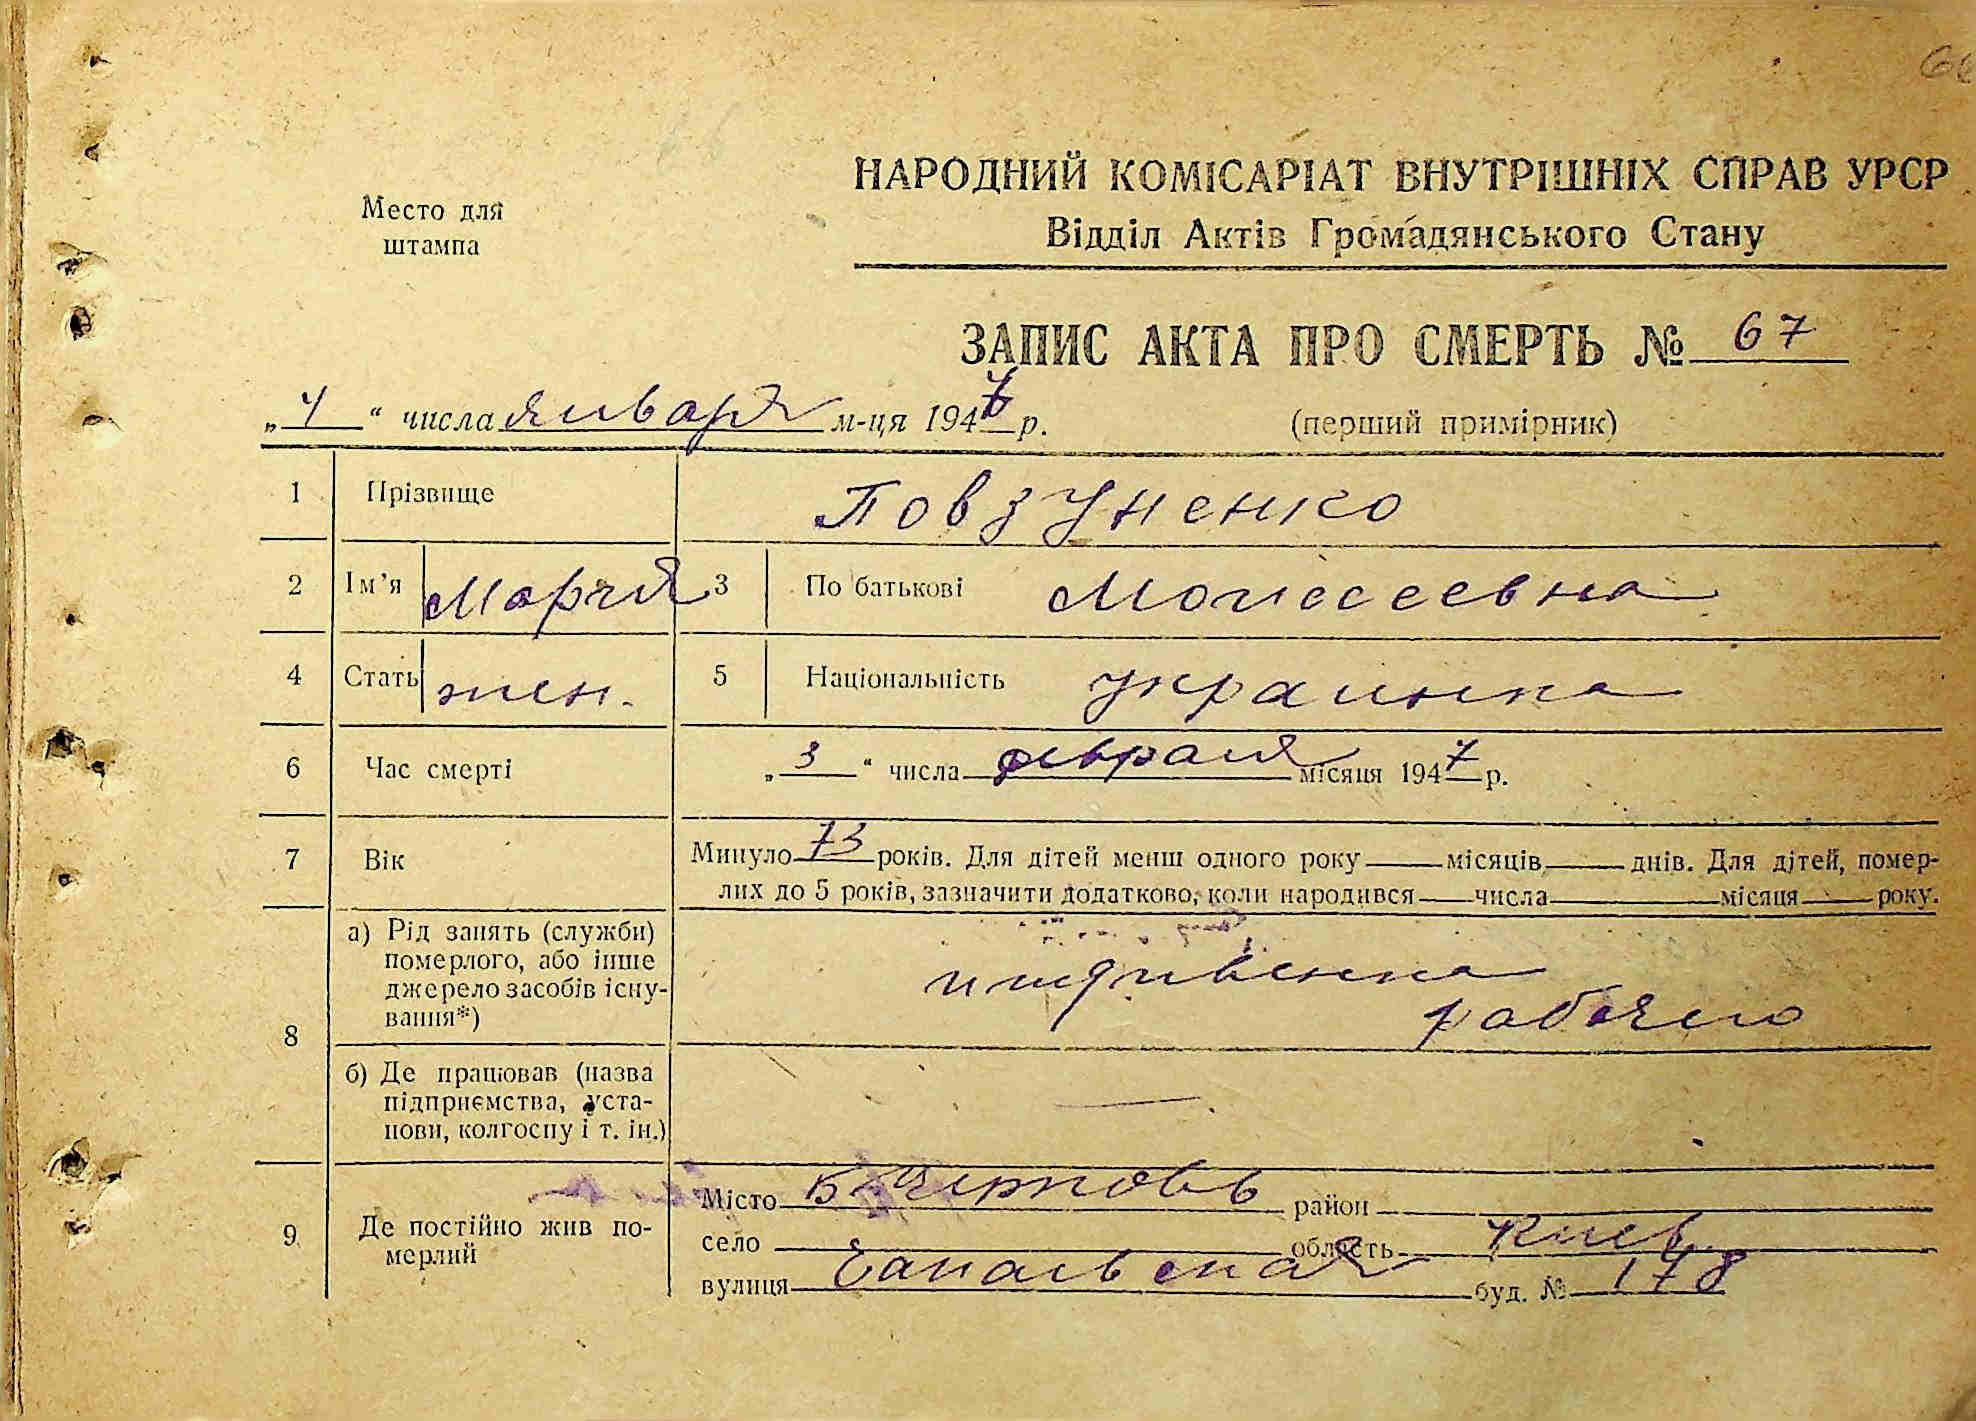 НАРОДНИЙ КОМІСАРІАТ ВНУТРІШНІХ СПРАВ УРСР
Место для
штампа
Відділ Актів Громадянського Стану
ЗАПИС АКТА ПРО СМЕРТЬ № 67
„4“ числа января м-ця 1947 р. (перший примірник)
1 Прізвище Повзуненко
2 Ім’я Мария 3 По батькові Моисеевна
4 Стать жен. 5 Національність украинка
6 Час смерті „3“ числа февраля місяця 1947 р.
7 Вік Минуло 73 років. Для дітей менш одного року місяців днів. Для дітей, помер-
лих до 5 років, зазначити додатково, коли народився числа місяця року.
8 а) Рід занять (служби)
померлого, або інше
джерело засобів існу-
вання*)
иждивенка
рабочего
б) Де працював (назва
підприємства, уста-
нови, колгоспу і т. ін.)
—
9 Де постійно жив по-
мерлий
Місто Б Церковь район
село область Киев.
вулиця буд. № 178